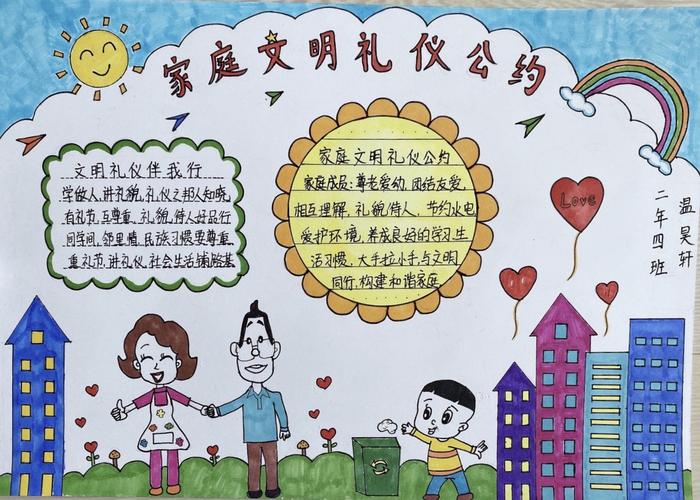 家庭文明礼仪公约
文明礼仪伴我行
学做人,讲礼貌,礼仪之邦人知晓,
有礼节,互尊重,礼貌待人好品行
同学间,邻里情,民族习惯要尊重,
重礼节,讲礼仪,社会生活铺路基
家庭文明礼仪公约
家庭成员:尊老爱幼,团结友爱,
相互理解,礼貌待人,节约水电
爱护环境,养成良好的学习生
活习惯,大手拉小手,与文明
同行,构建和谐家庭
Love
二年四班
温昊轩